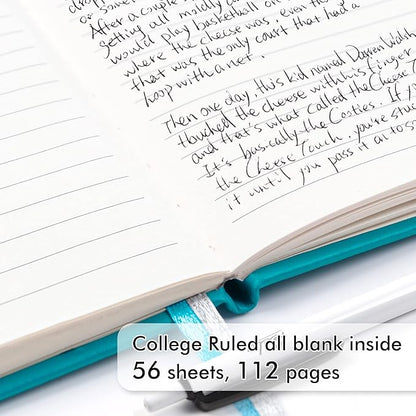 or some
After a couple
getting all mildly
would play basketball on
where the cheese was, even tho
that was the only court that had a
hoop with a net.
Then one day, this kid named Darren Walsh
touched the cheese with his finger,
and that's what called the Cheese T
It's basically the Cooties. If yo
the Cheese Touch, you're stuc
it until you pass it on to so
College Ruled all blank inside
56 sheets, 112 pages